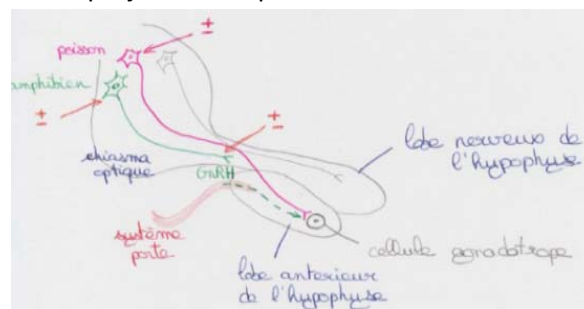 ±
poisson
amphibien
±
±
chiasma
optique
GnRH
lobe nerveux de
l'hypophyse
système
porte
cellule gonadotrope
lobe anterieur
de l'hypophyse